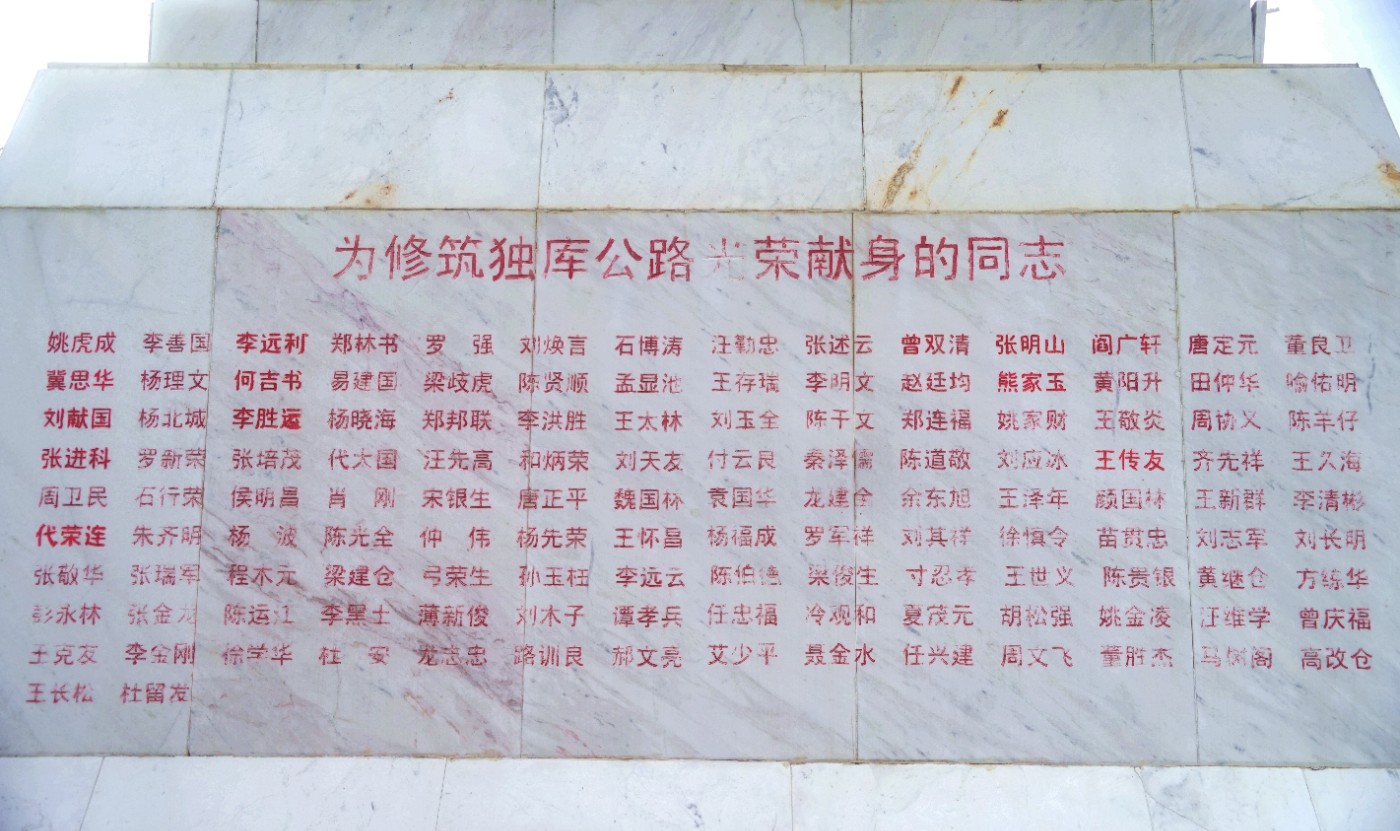 为修筑独库公路光荣献身的同志
姚虎成 李善国 李远利 郑林书 罗强 刘焕言 石博涛 汪勤忠 张述云 曾双清 张明山 阎广轩 唐定元 董良卫
冀思华 杨理文 何吉书 易建国 梁歧虎 陈贤顺 孟显池 王存瑞 李明文 赵廷均 熊家玉 黄阳升 田仲华 喻佑明
刘献国 杨北城 李胜运 杨晓海 郑邦联 李洪胜 王太林 刘玉全 陈干文 郑连福 姚家财 王敬炎 周协义 陈羊仔
张进科 罗新荣 张培茂 代太国 汪先高 和炳荣 刘天友 付云良 秦泽儒 陈道敬 刘应冰 王传友 齐先祥 王久海
周卫民 石行荣 侯明昌 肖刚 宋银生 唐正平 魏国林 袁国华 龙建仓 余东旭 王泽年 颜国林 王新群 李清彬
代荣连 朱齐明 杨波 陈光全 仲伟 杨先荣 王怀昌 杨福成 罗军祥 刘其祥 徐慎令 苗贯忠 刘志军 刘长明
张敬华 张瑞军 程木元 梁建仓 弓荣生 孙玉枉 李远云 陈伯德 梁俊生 寸忍孝 王世义 陈贵银 黄继仓 方练华
彭永林 张金龙 陈运江 李黑土 薄新俊 刘木子 谭孝兵 任忠福 冷观和 夏茂元 胡松强 姚金凌 汪维学 曾庆福
王克友 李金刚 徐学华 杜安 龙志忠 路训良 郝文亮 艾少平 聂金水 任兴建 周文飞 董胜杰 马树阁 高改仓
王长松 杜留发